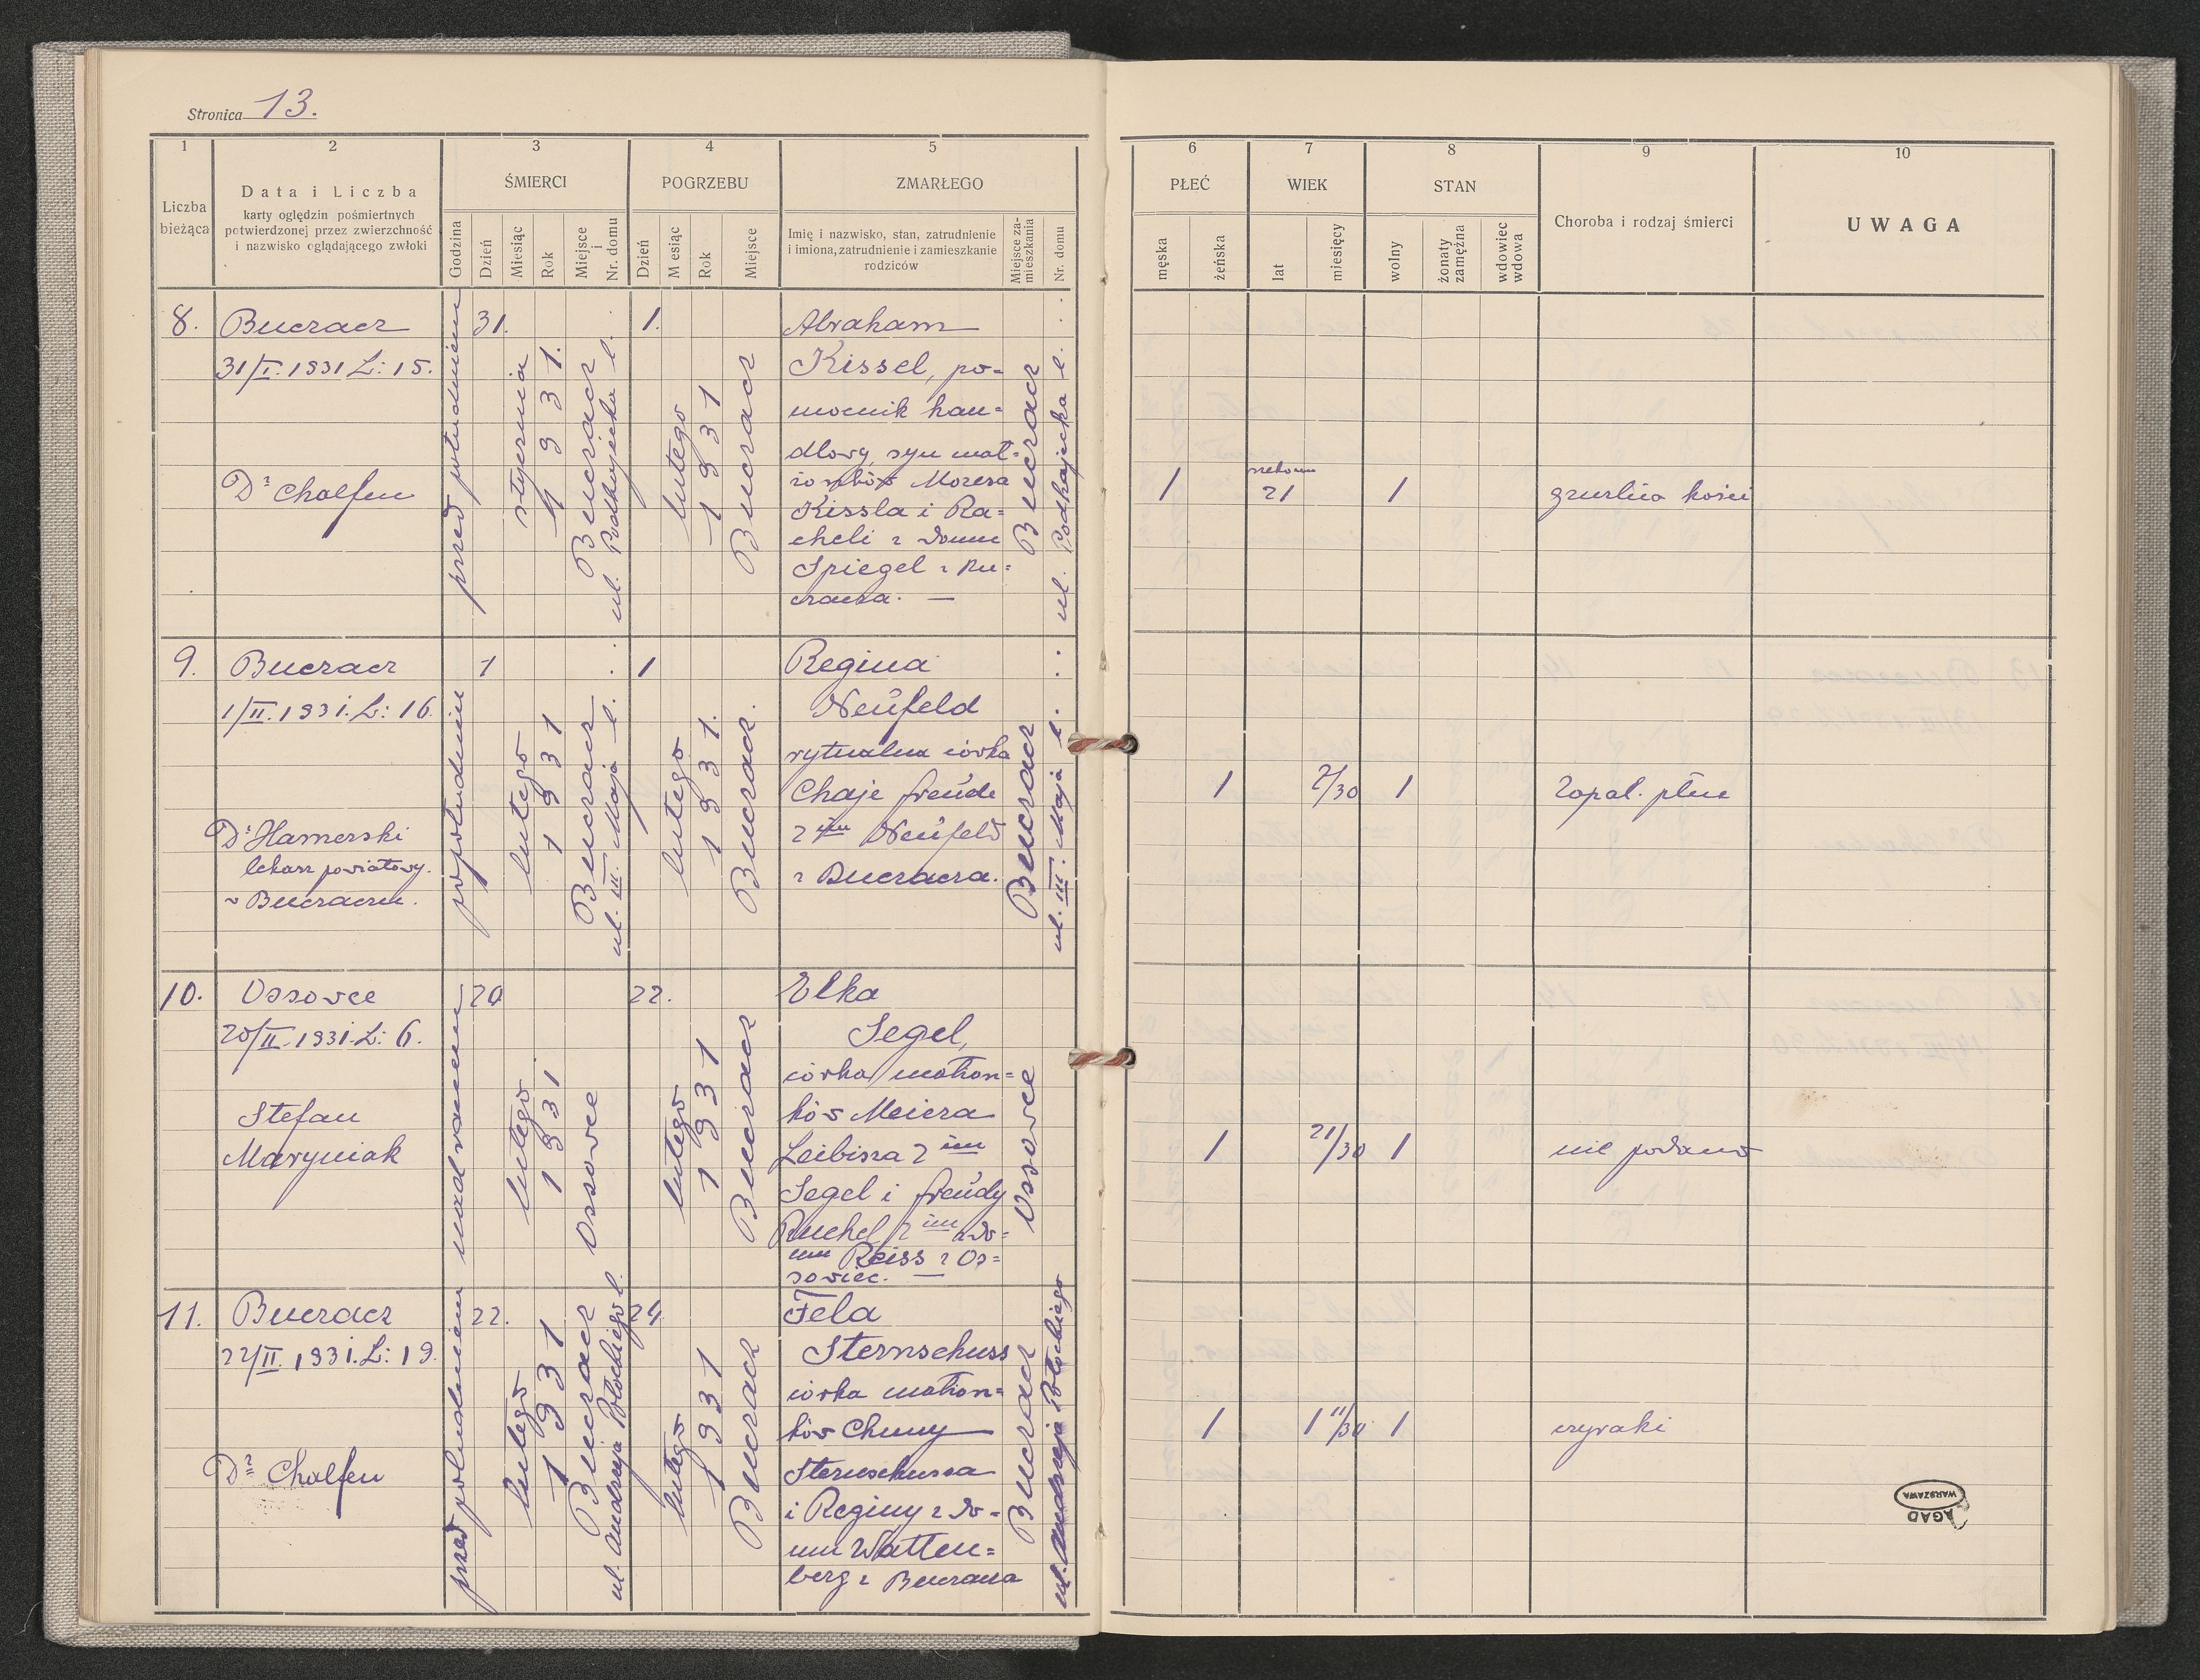 Stronica 13.
1
2
3
4
5
6
7
8
9
10
Liczba bieżąca
Data i Liczba
karty oględzin pośmiertnych
potwierdzonej przez zwierzchność
i nazwisko oglądającego zwłoki
ŚMIERCI
Godzina
Dzień
Miesiąc
Rok
Miejsce i Nr. domu
POGRZEBU
Dzień
M esiąc
Rok
Miejsce
ZMARŁEGO
Imię i nazwisko, stan, zatrudnienie
i imiona, zatrudnienie i zamieszkanie
rodziców
Miejsce za-
mieszkania
Nr. domu
PŁEĆ
męska
żeńska
WIEK
lat
miesięcy
STAN
wolny
żonaty
zamężna
wdowiec
wdowa
Choroba i rodzaj śmierci
UWAGA
8.
Buczacz
31/I. 1931 L: 15.
Dr Chalfen
przed południem
31.
stycznia
1931.
Buczacz
ul. Podhajecka l.
1.
lutego
1931
Buczacz
Abraham
Kissel, po-
mocnik han=
dlowy, syn mał=
żonków Mozesa
Kissla i Ra=
cheli z domu
Spiegel z Bu=
czacza. —
Buczacz
ul. Podhajecka l.
1
21
1
gruźlica kości
9.
Buczacz
1/II. 1931. L: 16.
Dr Hamerski
lekarz powiatowy
w Buczaczu.
popołudniu
1
lutego
1931
Buczacz
ul. III. Maja l.
1
lutego
1931.
Buczacz.
Regina
Neufeld
rytualna córka
Chaje Freude
2 im Neufeld
z Buczacza.
Buczacz
ul. III. Maja l.
1
2/30
1
Zapal. płuc
10.
Ossowce
20/II. 1931. L: 6.
Stefan
Maryniak
nad ranem
20
lutego
1931
Ossowce
22.
lutego
1931
Buczacz
Elka
Segel,
córka małżon=
ków Meiera
Leibisza 2 im
Segel i Freudy
Ruchel 2 im z do=
mu Reiss z Os=
sowiec. —
Ossowce
1
21/30
1
nie podano
11.
Buczacz
22/II. 1931. L: 19.
Dr Chalfen
przed południem
22.
lutego
1931
Buczacz
ul. Andrzeja Potockiego l.
24
lutego
1931
Buczacz
Fela
Sternschuss
córka małżon=
ków Chuny
Sternschussa
i Reginy z do=
mu Watten=
berg z Buczacza
Buczacz
ul. Andrzeja Potockiego
1
1 11/30
1
czyraki
AGAD
WARSZAWA